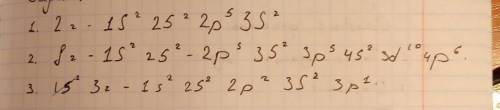 1. 2г - 1S² 2S² 2p⁵ 3S²
2. 8г - 1S² 2S² - 2p⁵ 3S² 3p⁵ 4S² 3d¹⁰ 4p⁶.
3. 1S² 3г - 1s² 2S² 2p² 3S² 3p¹